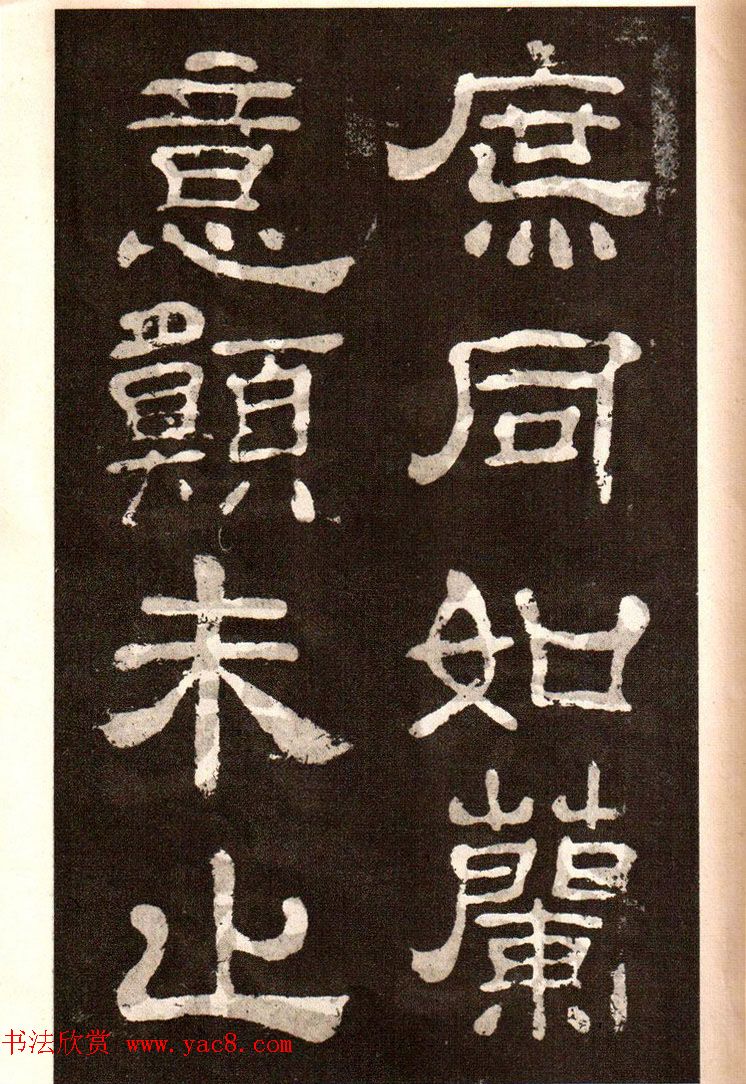 庶同如蘭
意顛未止
书法欣赏 www.yac8.com